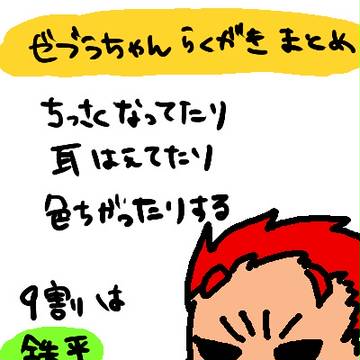 ぜぶらちゃん らくがき まとめ
ちっさくなってたり
耳はえてたり
色ちがったりする
9割は
鉄平